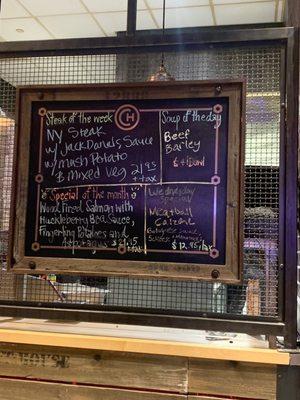 Steak of the week
NY Steak
w/ Jack Daniels Sauce
w/ Mush Potato
& Mixed Veg 21.95
+ tax
CH
Soup of the day
Beef
Barley
Special of the month
Wood Fired Salmon with
Huckleberry BBQ Sauce,
Fingerling Potatoes and
Asparagus
Wednesday
Special
Meatball
Calzone
$12.95/
HOUSE